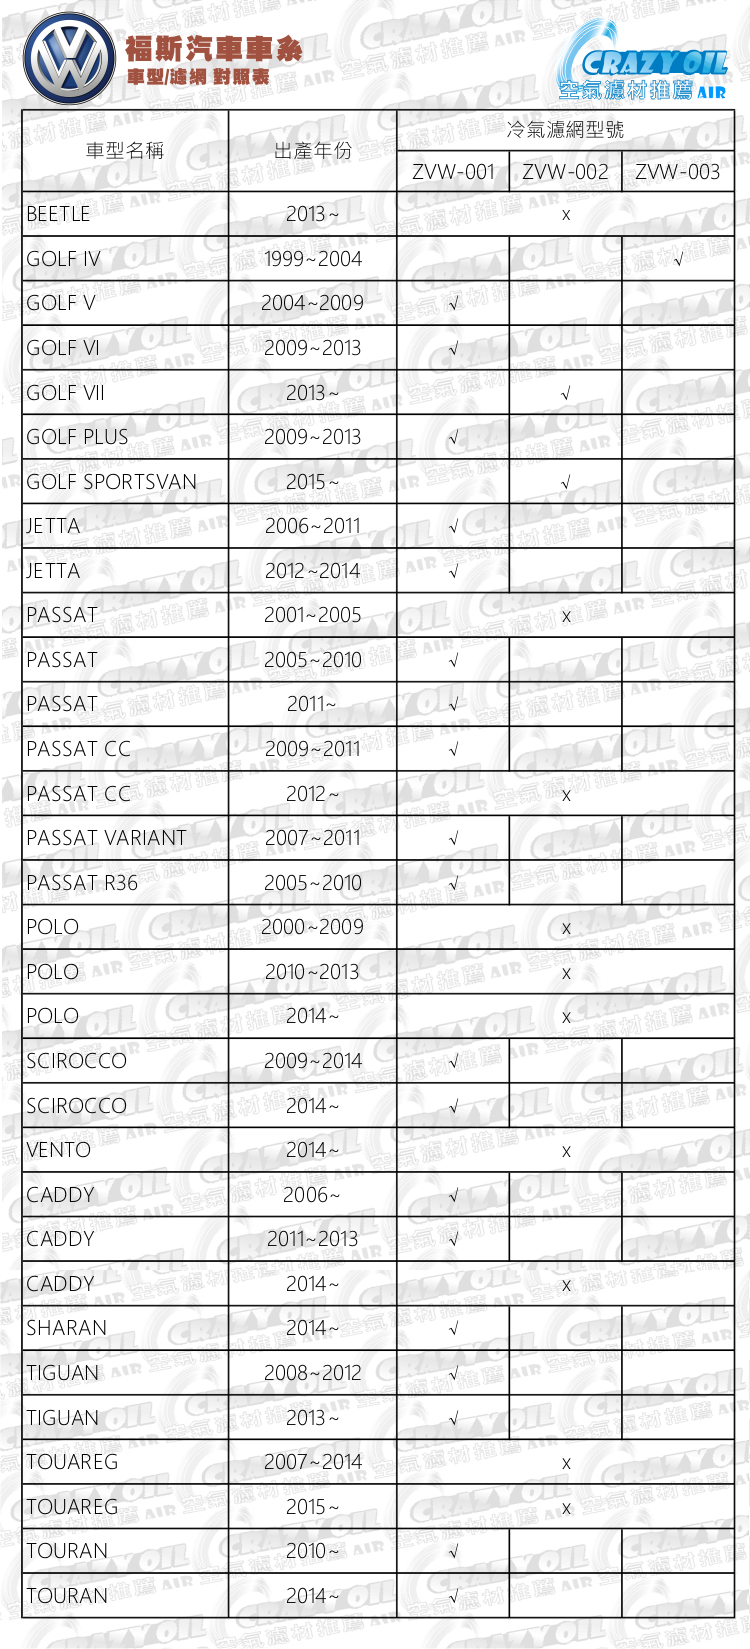 福斯汽車車系
車型/濾網 對照表
CRAZY OIL
空氣濾材推薦 AIR
車型名稱 出產年份 冷氣濾網型號
ZVW-001 ZVW-002 ZVW-003
BEETLE 2013~ x
GOLF IV 1999~2004 √
GOLF V 2004~2009 √
GOLF VI 2009~2013 √
GOLF VII 2013~ √
GOLF PLUS 2009~2013 √
GOLF SPORTSVAN 2015~ √
JETTA 2006~2011 √
JETTA 2012~2014 √
PASSAT 2001~2005 x
PASSAT 2005~2010 √
PASSAT 2011~ √
PASSAT CC 2009~2011 √
PASSAT CC 2012~ x
PASSAT VARIANT 2007~2011 √
PASSAT R36 2005~2010 √
POLO 2000~2009 x
POLO 2010~2013 x
POLO 2014~ x
SCIROCCO 2009~2014 √
SCIROCCO 2014~ √
VENTO 2014~ x
CADDY 2006~ √
CADDY 2011~2013 √
CADDY 2014~ x
SHARAN 2014~ √
TIGUAN 2008~2012 √
TIGUAN 2013~ √
TOUAREG 2007~2014 x
TOUAREG 2015~ x
TOURAN 2010~ √
TOURAN 2014~ √